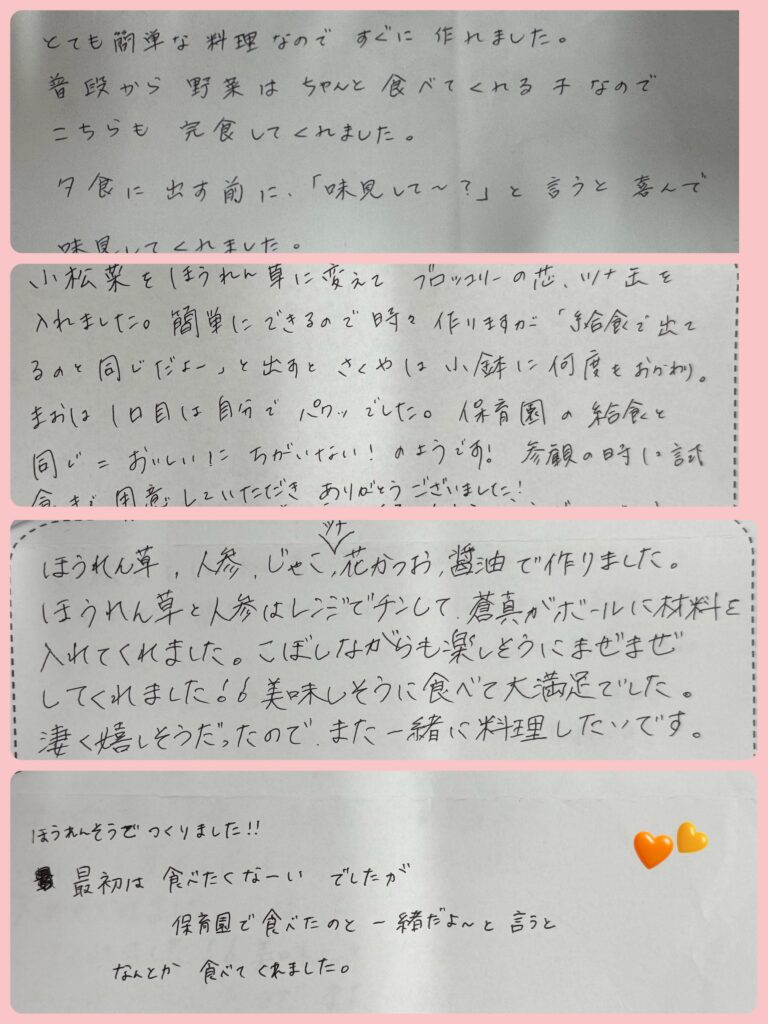 とても簡単な料理なので すぐに 作れました。
普段から 野菜は ちゃんと 食べてくれる子 なので
こちらも 完食してくれました。
夕食に 出す前に、「味見して〜?」と 言うと 喜んで
味見してくれました。
小松菜を ほうれん草に変えて ブロッコリーの芯、ツナ缶を
入れました。簡単にできるので時々 作りますが 「給食で出て
るのと 同じだよー」と 出すと さくやは 小鉢に 何度もおかわり。
まおは 1口目は自分で パクッでした。保育園の 給食と
同じ＝おいしい!に ちがいない! のようです! 参観の時に 試
食まで 用意していただき ありがとうございました!
ツナ
ほうれん草、人参、じゃこ、花かつお、醤油で作りました。
ほうれん草と人参はレンジでチンして、蒼真がボールに材料を
入れてくれました。こぼしながらも楽しそうにまぜまぜ
してくれました!! 美味しそうに食べて大満足でした。
凄く嬉しそうだったので、また一緒に料理したいです。
ほうれんそうで つくりました!!
最初は 食べたくなーい でしたが
保育園で食べたのと 一緒だよ〜と 言うと
なんとか 食べてくれました。